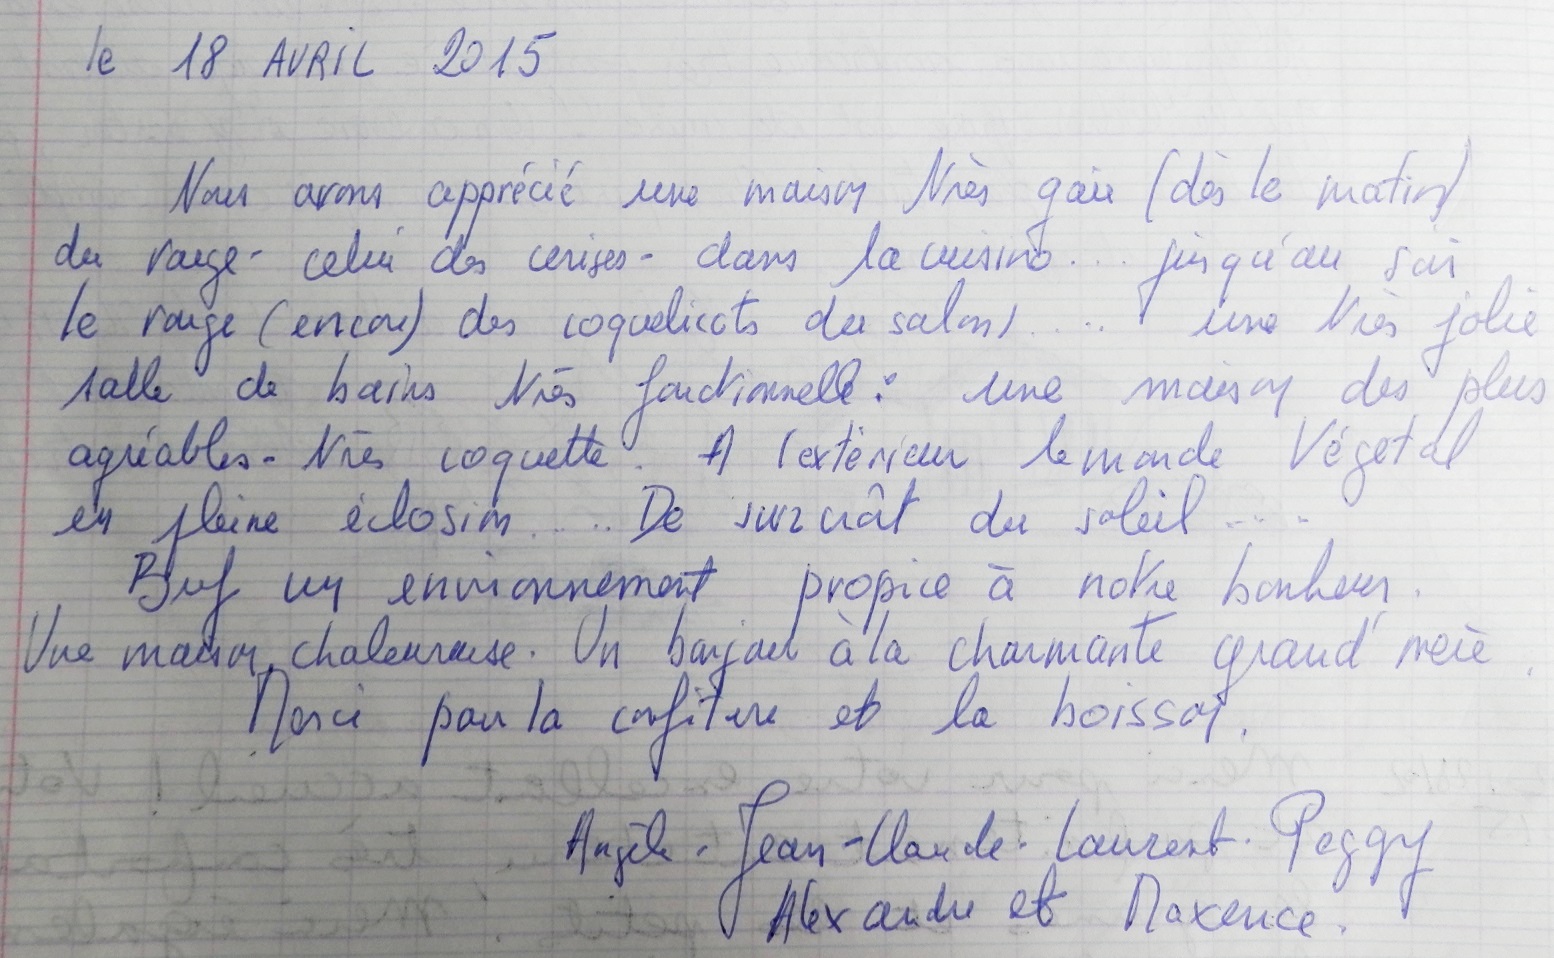 le 18 AVRIL 2015
Nous avons apprécié une maison très gaie (dès le matin)
du rouge - celui des cerises - dans la cuisine... jusqu'au soir
le rouge (encore) des coquelicots du salon).... une très jolie
salle de bains très fonctionnelle : une maison des plus
agréables - très coquette. A l'extérieur le monde Végétal
en pleine éclosion.... De surcroît du soleil....
Bref un environnement propice à notre bonheur.
Une maison chaleureuse. Un bonjour à la charmante grand'mère.
Merci pour la confiture et la boisson.
Angèle. Jean-Claude. Laurent. Peggy
Alexandre et Maxence.